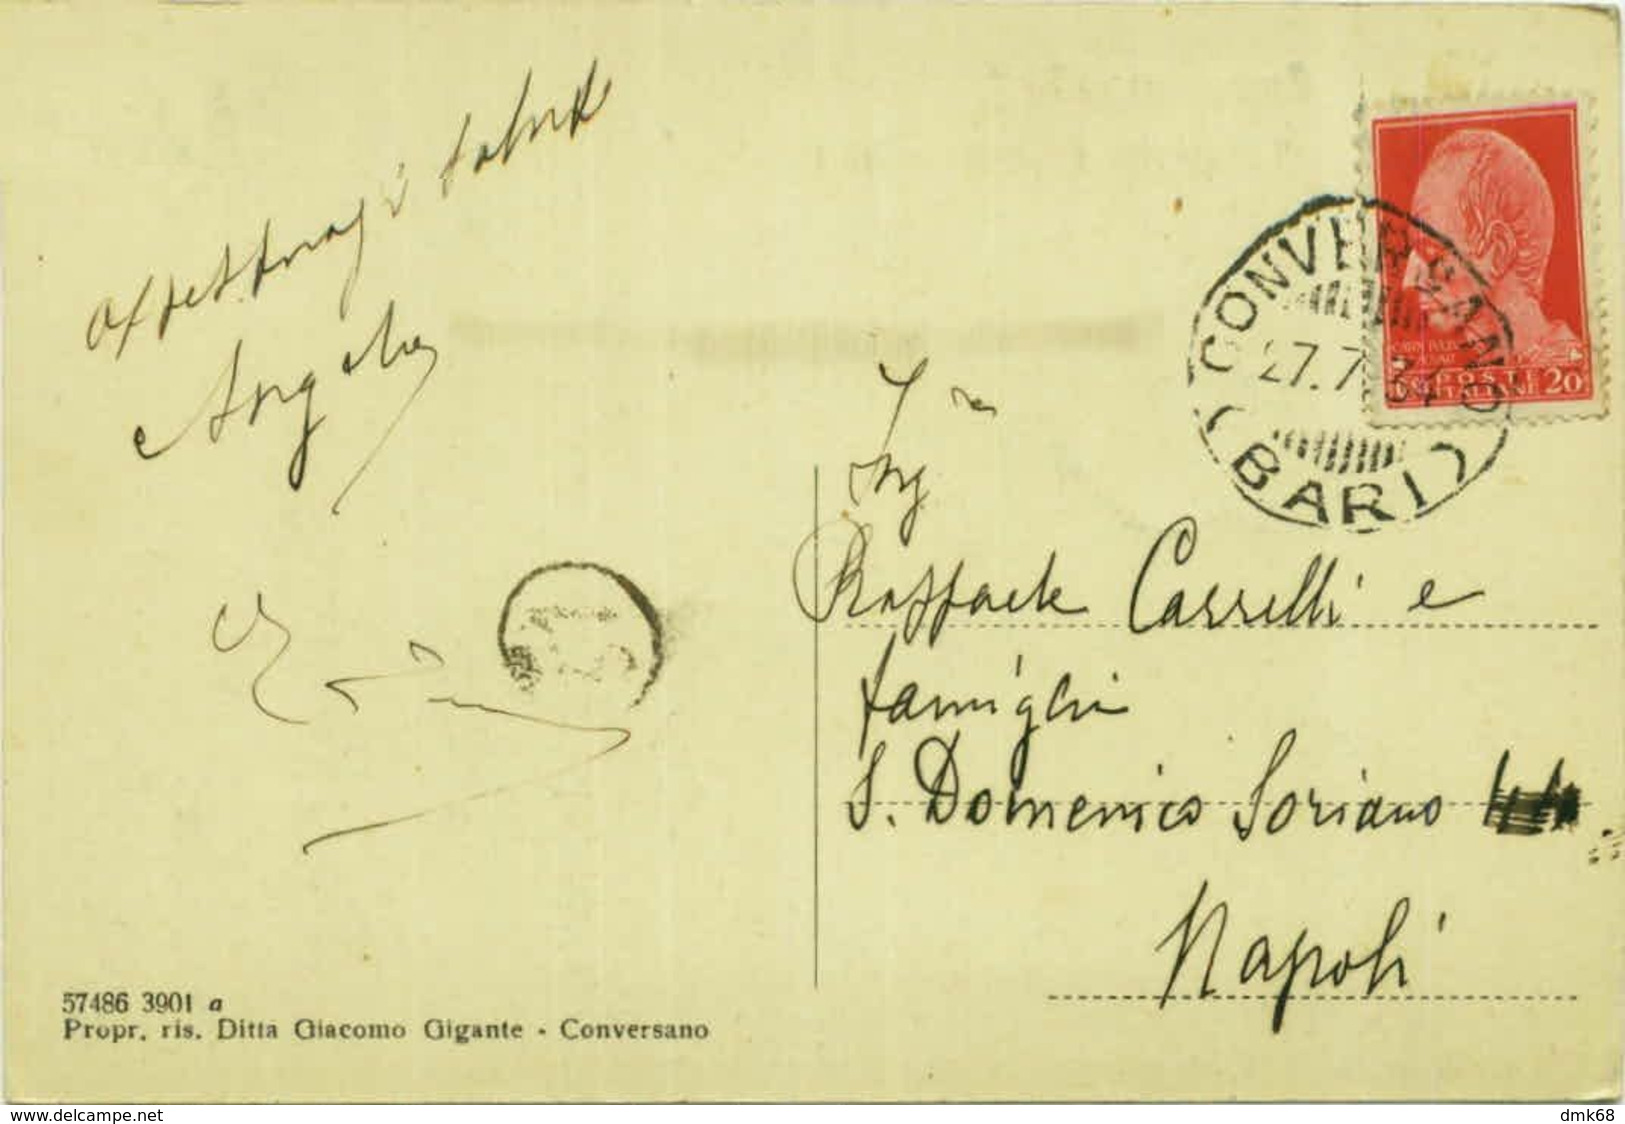 Affettuosi saluti
Angela
CONVERSANO
27.7.
(BARI)
POSTE
20
Ing
Raffaele Carrelli e
famiglia
S. Domenico Soriano 44
Napoli
57486 3901 a
Propr. ris. Ditta Giacomo Gigante - Conversano
www.delcampe.net
dmk68